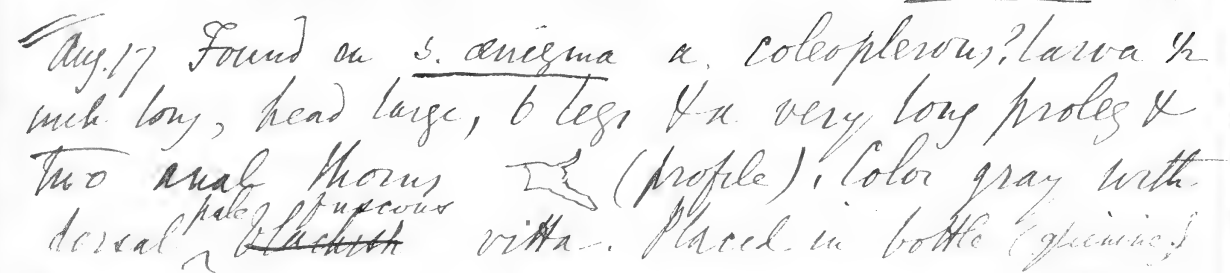 Aug. 17 Found on S. ænigma a coleopterous? larva ½
inch long, head large, 6 legs & a very long proleg &
two anal thorns (profile). Color gray with
pale fuscous
dorsal blackish vitta. Placed in bottle